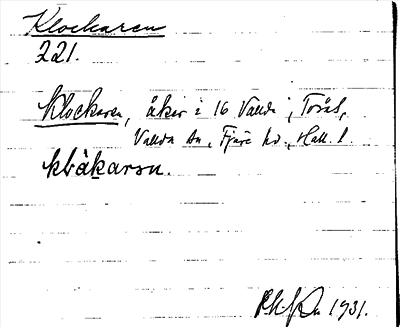 Klockaren
221.
Klockaren, åker i 16 Vallda, Torås,
Vallda sn, Fjäre hd., Hall. l.
klåkarən.
1931.